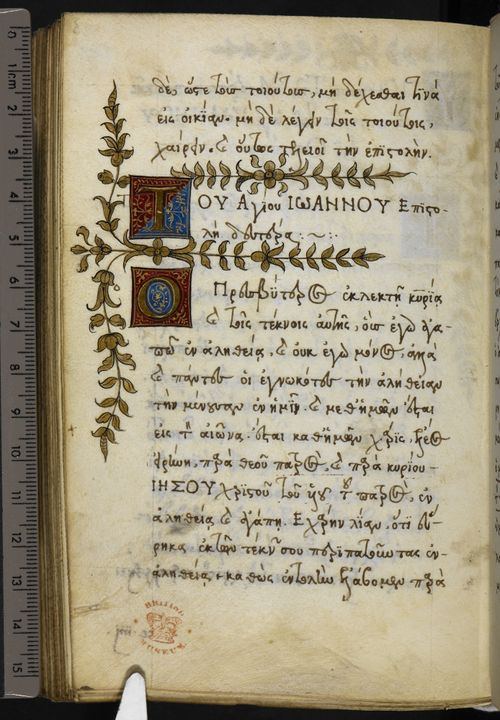 δὲ, ὥστε τοὺς τοιούτους, μὴ δέχεσθαι τινὰ
εἰς οἰκίαν. μὴ δὲ λέγειν τοῖς τοιούτοις,
χαίρειν. καὶ οὕτως τελειοῖ τὴν ἐπιστολήν.
ΤΟΥ Αγίου ΙΩΑΝΝΟΥ Επιστο-
λὴ δευτέρα :~:
Ο Πρεσβύτερος ἐκλεκτῇ κυρίᾳ
καὶ τοῖς τέκνοις αὐτῆς, οὓς ἐγὼ ἀγα-
πῶ ἐν ἀληθείᾳ, καὶ οὐκ ἐγὼ μόνος, ἀλλὰ
καὶ πάντες οἱ ἐγνωκότες τὴν ἀλήθειαν
τὴν μένουσαν ἐν ἡμῖν. καὶ μεθ' ἡμῶν ἔσται
εἰς τὸν αἰῶνα. ἔσται μεθ' ἡμῶν χάρις, ἔλεος
εἰρήνη, παρὰ θεοῦ πατρὸς, καὶ παρὰ κυρίου
ΙΗΣΟΥ χριστοῦ τοῦ υἱοῦ τοῦ πατρὸς, ἐν
ἀληθείᾳ καὶ ἀγάπῃ. Εχάρην λίαν, ὅτι εὕ-
ρηκα ἐκ τῶν τέκνων σου περιπατοῦντας ἐν
ἀληθείᾳ, καθὼς ἐντολὴν ἐλάβομεν παρὰ
BRITISH
MUSEUM